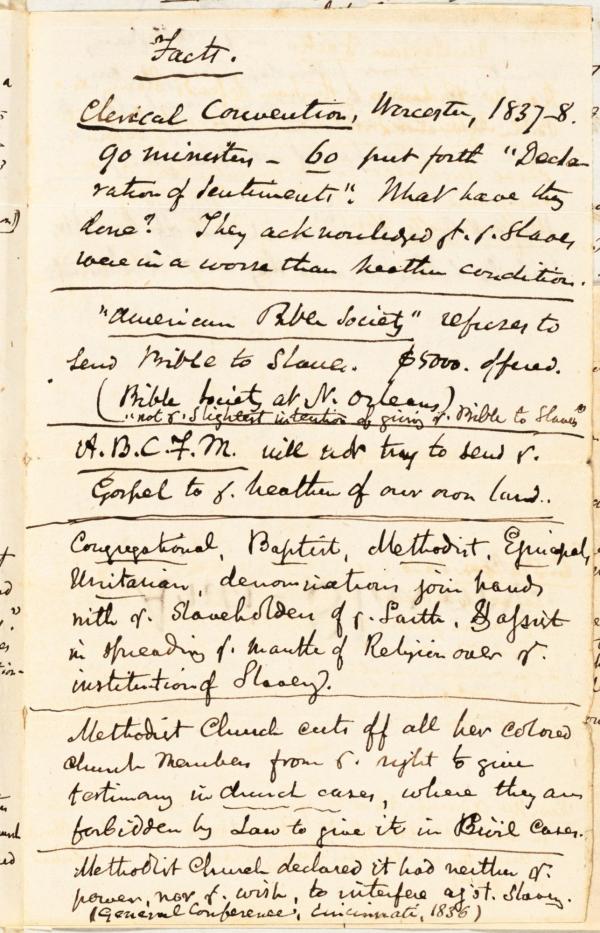 Facts.
Clerical Convention, Worcester, 1837-8.
90 ministers - 60 put forth "Decla-
ration of Sentiments". What have they
done? They acknowledged yt. ye. Slaves
were in a worse than heathen condition.
"American Bible Society" refuses to
send Bible to Slaves. $5000. offered.
(Bible Society at N. Orleans)
"not ye. slightest intention of giving ye. Bible to Slaves"
A.B.C.F.M. will not try to send ye.
Gospel to ye. heathen of our own land..
Congregational, Baptist, Methodist, Episcopal,
Unitarian, denominations join hands
with ye. Slaveholders of ye. South, & assist
in spreading ye. mantle of Religion over ye.
institution of Slavery.
Methodist Church cuts off all her colored
church members from ye. right to give
testimony in church cases, where they are
forbidden by Law to give it in Civil Cases.
Methodist Church declared it had neither ye.
power, nor ye. wish, to interfere agst. Slavery.
(General Conference, Cincinnati, 1836)